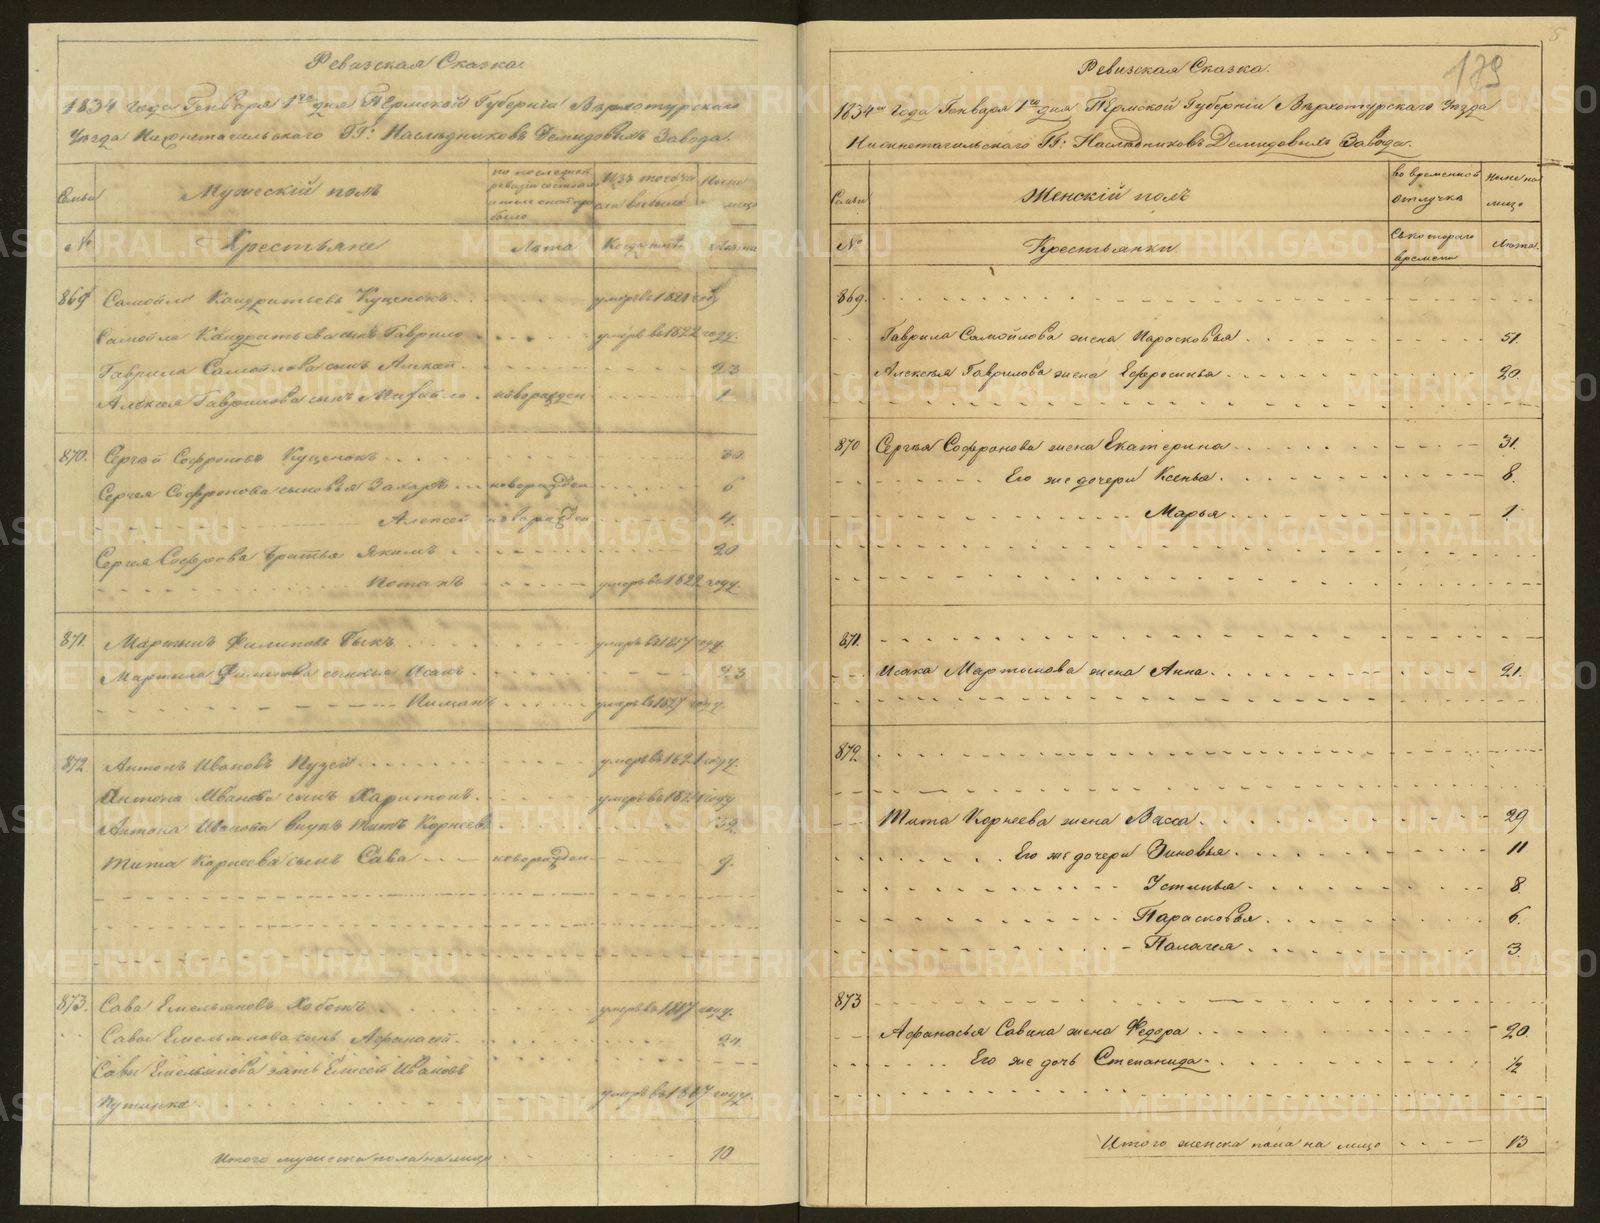 Ревизская Сказка.
1834 года Генваря 1го дня Пермской Губернии Верхотурскаго
Уезда Нижнетагильскаго ГГ: Наследниковъ Демидовыхъ Завода.
Семьи
Мужескій полъ
по последней ревизіи состояло и после оной прибыло
Изъ того числа выбыло
Ныне на лицо
№
Крестьяне
Лета
Когда имянно
Лета
869 Самойло Кондратьевъ Куценокъ умеръ въ 1821 году
Самойла Кондратьева сынъ Гаврило умеръ въ 1822 году.
Гаврила Самойлова сынъ Алексей 23
Алексея Гаврилова сынъ Михайло новорожден 1
870. Сергей Софроновъ Куценокъ 30.
Сергея Софронова сыновья Захаръ новорожден 6
Алексей новорожден 4.
Сергея Софрова братья Якимъ 20
Потапъ умеръ въ 1822 году
871. Мартынъ Филиповъ Быкъ умеръ въ 1817 году.
Мартына Филипова сыновья Исакъ 23
Пиманъ умеръ въ 1827 году.
872. Антонъ Ивановъ Пузей умеръ въ 1821 году.
Антона Иванова сынъ Харитонъ умеръ въ 1821 году
Антона Иванова внукъ Титъ Корнеевъ 32.
Тита Корнеева сынъ Сава новорожден 9.
873. Сава Емельяновъ Хоботъ умеръ въ 1817 году.
Савы Емельянова сынъ Афанасей 24.
Савы Емельянова зять Елисей Ивановъ
Путинка умеръ въ 1817 году
Итого мужеска пола на лицо 10
179
5
Ревизская Сказка.
1834го года Генваря 1го дня Пермской Губерніи Верхотурскаго Уезда
Нижнетагильскаго ГГ: Наследниковъ Демидовыхъ Завода.
Семьи
Женскій полъ
во временной отлучке
Ныне на лицо
№
Крестьянки
Съ котораго времени
Лета.
869.
Гаврила Самойлова жена Парасковья 51.
Алексея Гаврилова жена Ефросинья 20.
870 Сергея Софронова жена Екатерина 31.
Его же дочери Ксенья 8.
Марья 1.
871.
Исака Мартынова жена Анна 21.
872.
Тита Корнеева жена Васса 29
Его же дочери Зиновья 11
Устинья 8.
Парасковья 6.
Палагея 3.
873
Афанасья Савина жена Федора 20.
Его же дочь Степанида 1/2
Итого женска пола на лицо 13
METRIKI.GASO-URAL.RU